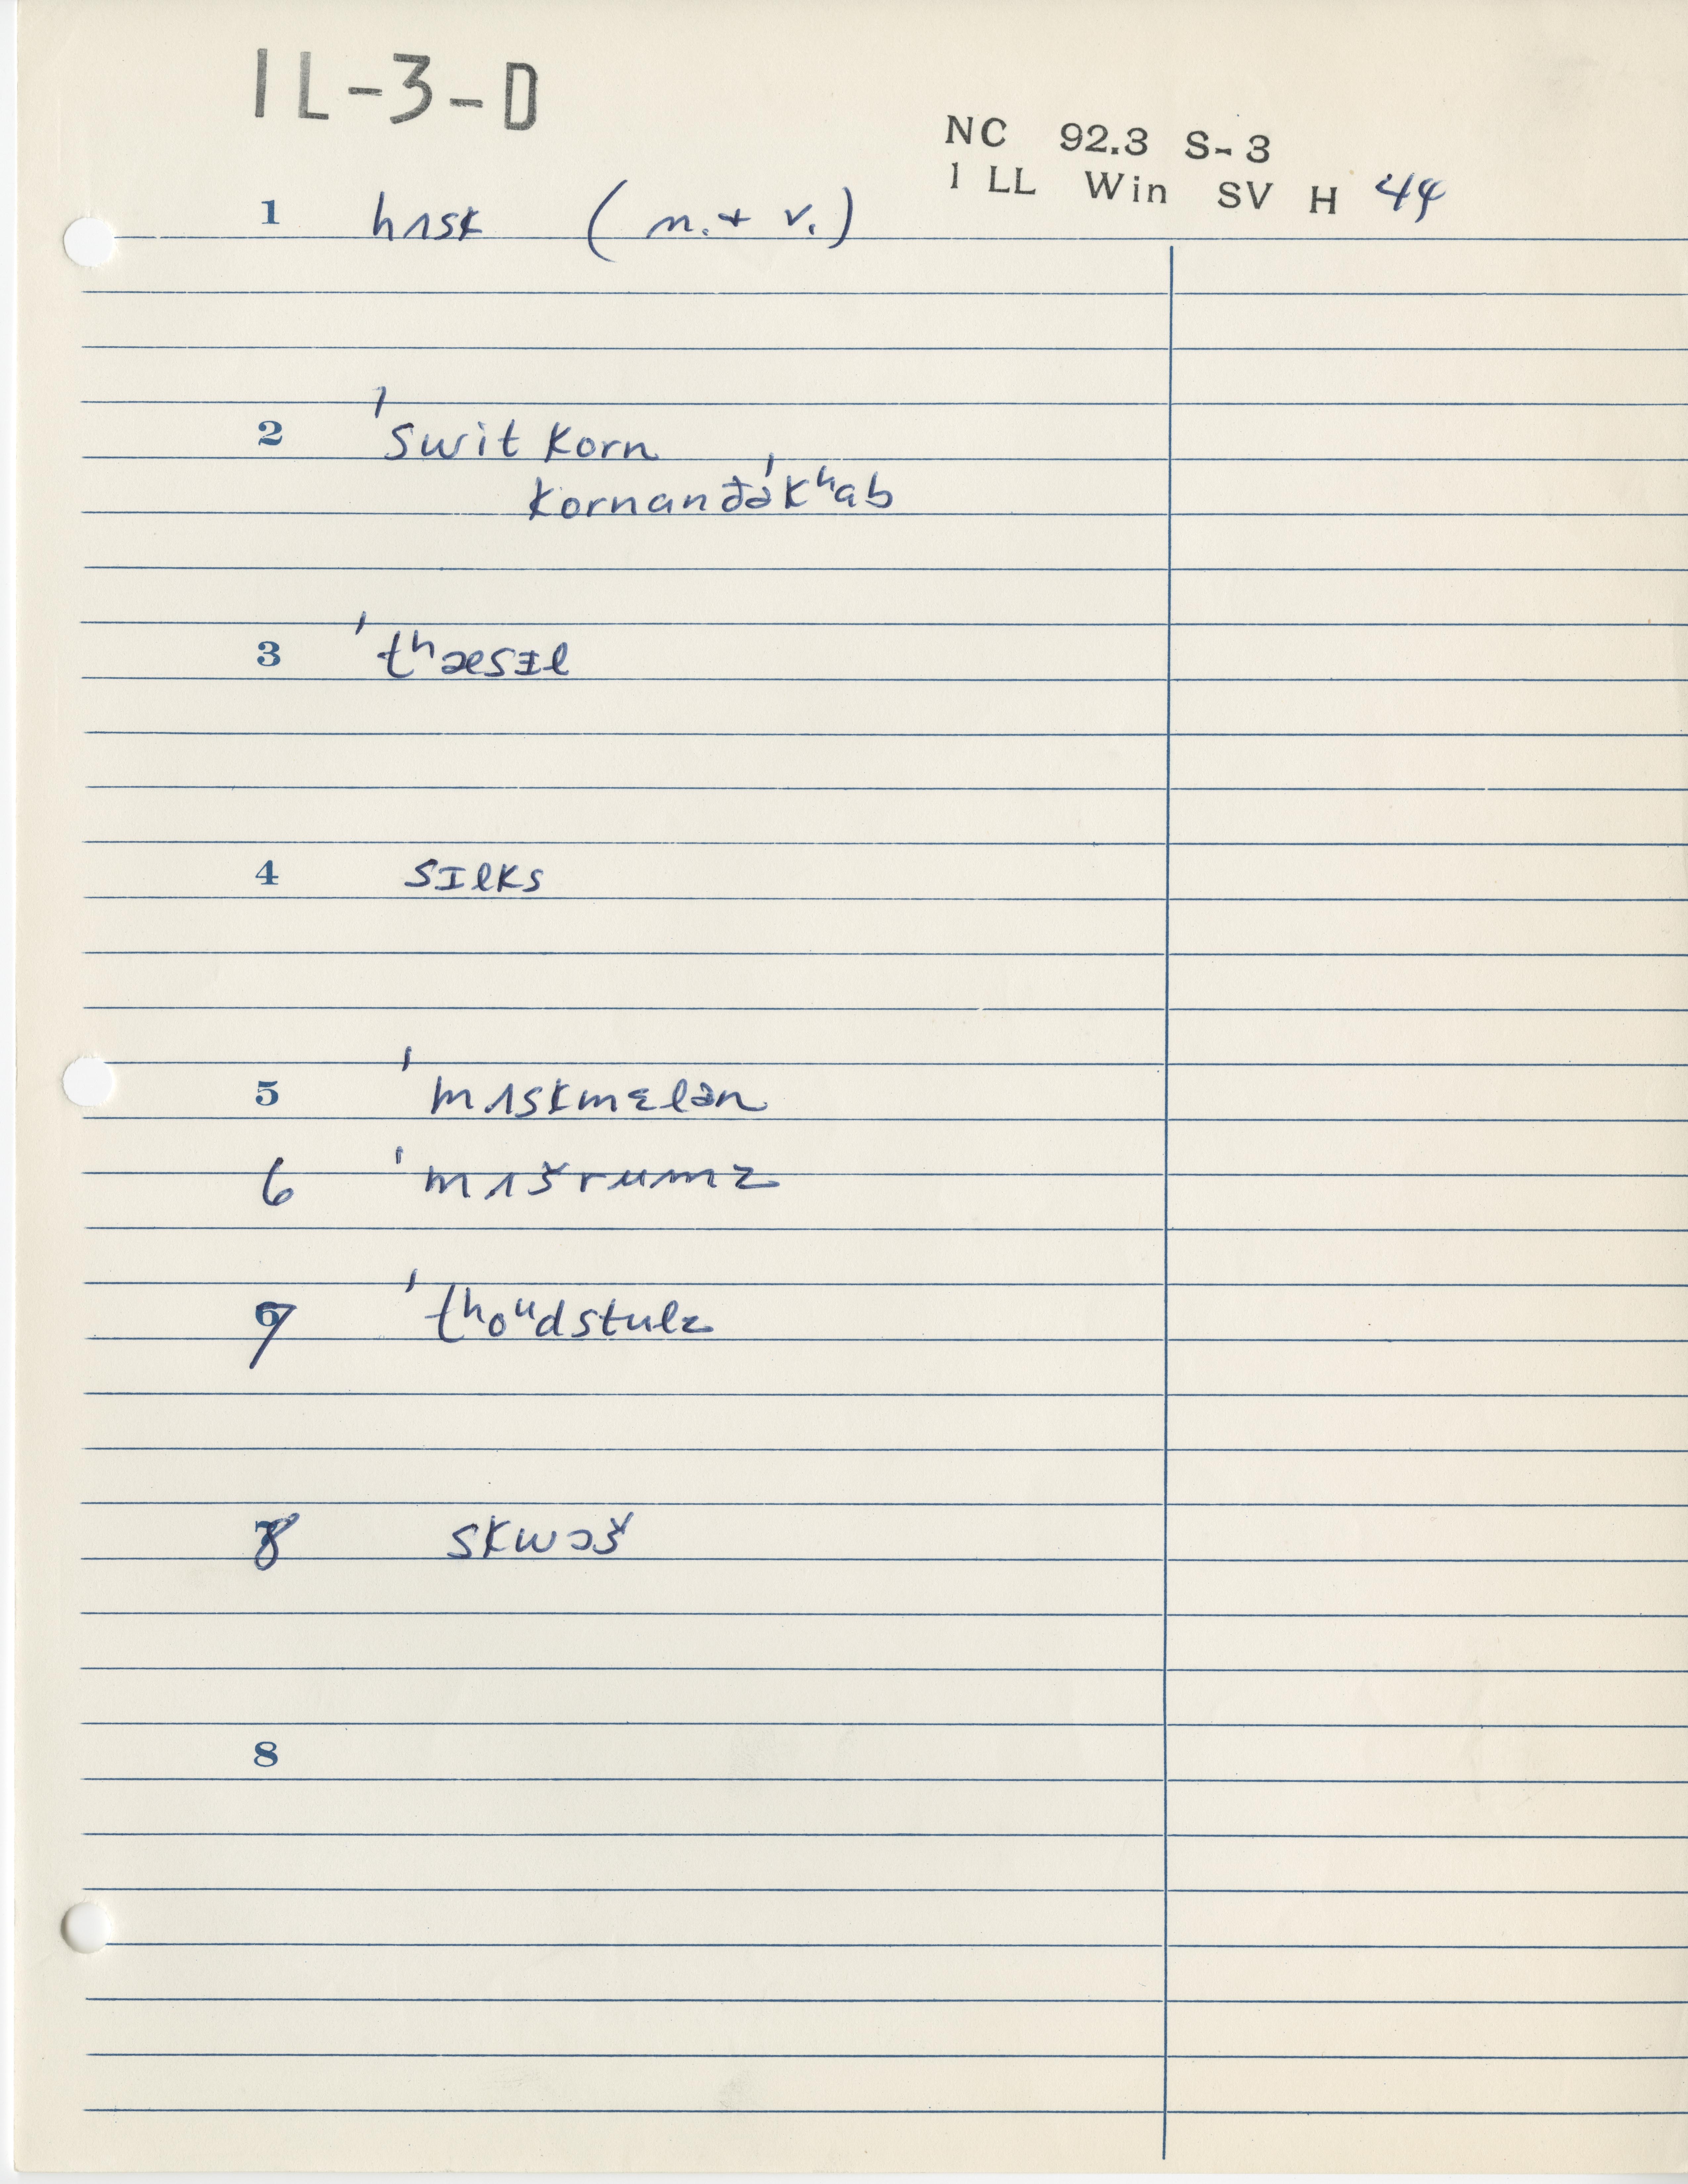 IL-3-D
NC 92.3 S-3
1 LL Win SV H 44
1 hʌsk (n. + v.)
2 ˈswit korn
kornanðəˈkʰab
3 ˈtʰæsɪl
4 sɪlks
5 ˈmʌskmɛlən
6 ˈmʌšrumz
7 ˈtʰoᵘdstulz
8 skwɔš
8